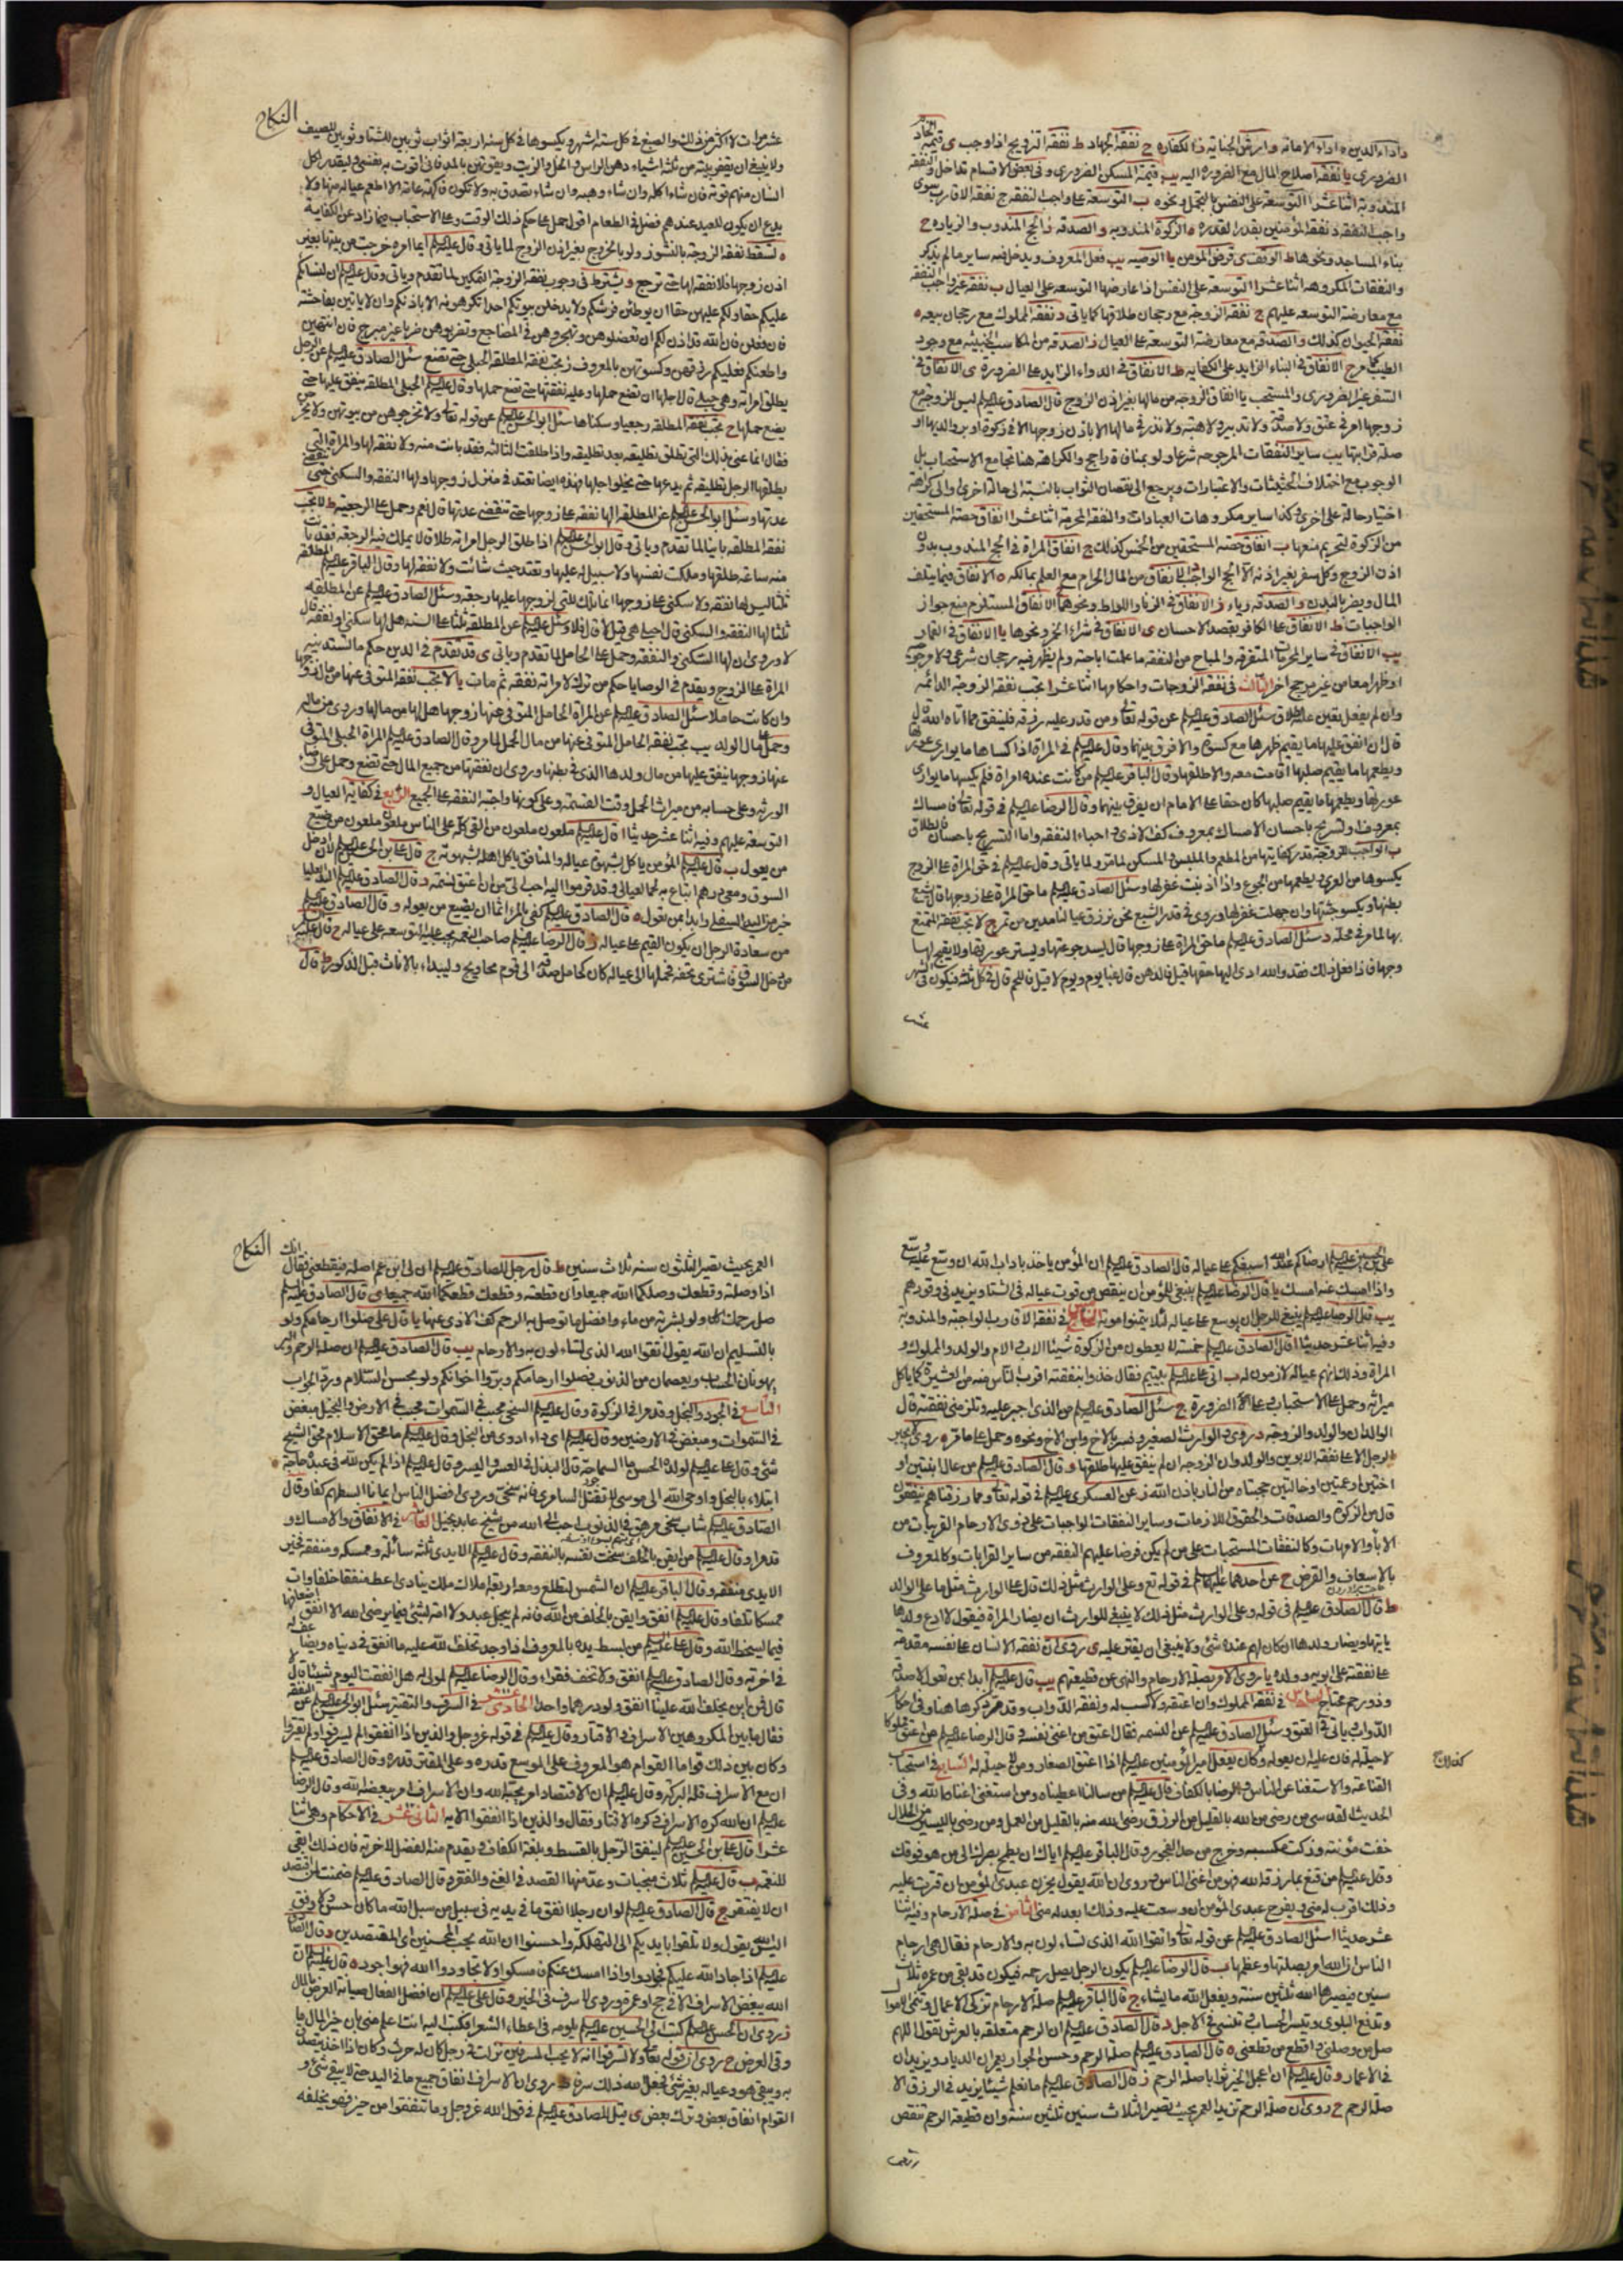 واداء الدين ه اداء الامانة و ارش الجناية ز الكفاره ح نفقة الجهاد ط نفقة التزويج اذا وجب ى قيمة
الضروري يا نفقة اصلاح المال مع الضرورة اليه يب قيمة المسكن الضروري وفي بعض الاقسام تداخل والنفقة
المندوبة اثنا عشر ا التوسعة على النفس بالتجمل ونحوه ب التوسعة على واجب النفقة ج نفقة الاقارب سوى
واجب النفقة د نفقة المؤمنين بقدر القدره ه الزكوة المندوبه و الصدقه ز الحج المندوب والزياره ح
بناء المساجد ونحوها ط الوقف ى قرض المؤمن يا الوصيه يب فعل المعروف ويدخل فيه ساير ما لم يذكر
والنفقات المكروهه اثنا عشر ا التوسعة على النفس اذا عارضها التوسعه على العيال ب نفقة غير واجب النفقة
مع معارضة التوسعه عليهم ج نفقة الزوجة مع رجحان طلاقها كما ياتى د نفقة المملوك مع رجحان بيعه ه
نفقة الحيوان كذلك و الصدقه مع معارضة التوسعة على العيال ز الصدقه من المكاسب الخبيثه مع وجود
الطيب ح الانفاق في البناء الزايد على الكفايه ط الانفاق في الدواء الزايد على الضرورة ى الانفاق في
السفر غير الضرورى والمستحب يا انفاق الزوجه من مالها بغير اذن الزوج قال الصادق عليه السلم ليس للزوجة مع
زوجها امر في عتق ولا صدقة ولا تدبير ولا هبة ولا نذر في مالها الا باذن زوجها الا في زكوة او بر والديها او
صلة قرابتها يب ساير النفقات المرجوحه شرعا ولو بمنافاة راجح والكراهة هنا تجامع الاستحباب بل
الوجوب مع اختلاف الحيثيات والاعتبارات ويرجع الى نقصان الثواب بالنسبة الى حالة اخرى والى كراهة
اختيار حالة على اخرى وكذا ساير مكروهات العبادات والنفقة المحرمة اثنا عشر ا انفاق حصة المستحقين
من الزكوة لتحريم منعها ب انفاق حصه المستحقين من الخمس كذلك ج انفاق المراة في الحج المندوب بدون
اذن الزوج وكل سفر بغير اذنه الا الحج الواجب د الانفاق من المال الحرام مع العلم بمالكه ه الانفاق فيما يتلف
المال ويضر بالبدن و الصدقه رياء ز الانفاق في الزنا واللواط ونحوهما ح الانفاق المستلزم منع جواز
الواجبات ط الانفاق على الكافر بقصد الاحسان ى الانفاق في شراء الخمر ونحوها يا الانفاق في القمار
يب الانفاق في ساير المحرمات المتفرقه والمباح من النفقه ما علمت اباحته ولم يظهر فيه رجحان شرعى ولا مرجوحية
او ظهرا معا من غير مرجح اخر الثالث في نفقة الزوجات واحكامها اثنا عشر ا تجب نفقة الزوجة الدائمه
وان لم يفعل تعين عليه الطلاق سئل الصادق عليه السلم عن قوله تعالى ومن قدر عليه رزقه فلينفق مما اتاه الله
قال ان انفق عليها ما يقيم ظهرها مع كسوة والا فرق بينهما وقال عليه السلم في المراة اذا كساها ما يوارى عورتها
ويطعمها ما يقيم صلبها اقامت معه والا طلقها وقال الباقر عليه السلم من كانت عنده امراة فلم يكسها ما يوارى
عورتها ويطعمها ما يقيم صلبها كان حقا على الامام ان يفرق بينهما وقال الرضا عليه السلم في قوله تعالى فامساك
بمعروف او تسريح باحسان الامساك بمعروف كف الاذى و احباء النفقه واما التسريح باحسان فالطلاق
ب الواجب للزوجة قدر كفايتها من المطعم والملبس والمسكن لما مر ولما ياتى وقال عليه السلم في حق المراة على الزوج
يكسوها من العرى ويطعمها من الجوع واذا اذنبت غفر لها وسئل الصادق عليه السلم ما حق المراة على زوجها قال يشبع
بطنها ويكسو جثتها وان جهلت غفر لها وروى في قدر الشبع نحن نرزق عيالنا مدين من تمر ج لا تجب نفقة المتمتع
بها لما مر في محله د سئل الصادق عليه السلم ما حق المراة على زوجها قال يسد جوعتها ويستر عورتها ولا يقبح لها
وجها فاذا فعل ذلك فقد والله ادى اليها حقها قيل فالدهن قال غبا يوم ويوم لا قيل فاللحم قال في كل ثلثه فيكون في الشهر
عشر
النكاح
عشر مرات لا اكثر من ذلك والصبغ في كل ستة اشهر ويكسوها في كل سنة اربعة اثواب ثوبين للشتا وثوبين للصيف
ولا ينبغي ان يقفر بيته من ثلثة اشياء دهن الراس والخل والزيت ويقوتهن بالمد فانى اقوت به نفسى وليقدر لكل
انسان منهم قوته فان شاء اكله وان شاء وهبه وان شاء تصدق به ولا تكون فاكهة عامة الا اطعم عياله منها ولا
يدع ان يكون للعيد عندهم فضل في الطعام اقول حمل على حكم ذلك الوقت وعلى الاستحباب فيما زاد عن الكفاية
ه تسقط نفقة الزوجة بالنشوز ولو بالخروج بغير اذن الزوج لما ياتى وقال عليه السلم ايما امراه خرجت من بيتها بغير
اذن زوجها فلا نفقة لها حتى ترجع و يشترط في وجوب نفقة الزوجة التمكين لما تقدم وياتى وقال عليه السلم ان لنسائكم
عليكم حقا ولكم عليهن حقا ان يوطئن فرشكم ولا يدخلن بيوتكم احدا تكرهونه الا باذنكم وان لا ياتين بفاحشة
فان فعلن فان الله قد اذن لكم ان تعضلوهن وتهجروهن في المضاجع وتضربوهن ضربا غير مبرح فان انتهين
واطعنكم فعليكم رزقهن وكسوتهن بالمعروف ز تجب نفقة المطلقة الحبلى حتى تضع سئل الصادق عليه السلم عن الرجل
يطلق امراته وهى حبلى قال اجلها ان تضع حملها وعليه نفقتها حتى تضع حملها وقال عليه السلم الحبلى المطلقه ينفق عليها حتى
يضع حملها ح تجب نفقة المطلقه رجعيا وسكناها سئل ابو الحسن عليه السلم عن قوله تعالى ولا تخرجوهن من بيوتهن ولا يخرجن
فقال انما عنى بذلك التى تطلق تطليقه بعد تطليقه واذا طلقت الثالثه فقد بانت منه ولا نفقة لها والمراة التى
يطلقها الرجل تطليقه ثم يدعها حتى يخلو اجلها فهذه ايضا تعتد في منزل زوجها ولها النفقه والسكنى حتى تنقضى
عدتها وسئل ابو الحسن عليه السلم عن المطلقه الها نفقه على زوجها حتى تنقضى عدتها قال نعم وحمل على الرجعيه ط لا تجب
نفقة المطلقه باينا لما تقدم وياتى وقال ابو الحسن عليه السلم اذا طلق الرجل امراته طلاقا لا يملك فيه الرجعه فقد بانت
منه ساعة طلقها وملكت نفسها ولا سبيل له عليها وتعتد حيث شائت ولا نفقة لها وقال الباقر عليه السلم المطلقه
ثلثا ليس لها نفقه ولا سكنى على زوجها انما تلك للتى لزوجها عليها رجعه وسئل الصادق عليه السلم عن المطلقه
ثلثا الها النفقه والسكنى قال احبلى هى قيل لا قال فلا وسئل عليه السلم عن المطلقه ثلثا على السنه هل لها سكنى او نفقه قال
لا وروى ان لها السكنى والنفقه وحمل على الحامل لما تقدم وياتى ى قد تقدم في الدين حكم ما استدينته
المراة على الزوج ويقدم في الوصايا حكم من ترك لامراته نفقه ثم مات يا لا تجب نفقة المتوفى عنها من مال زوجها
وان كانت حاملا سئل الصادق عليه السلم عن المراة الحامل المتوفى عنها زوجها هل لها من مالها وروى من ماله
وحمل على مال الولد يب تجب نفقة الحامل المتوفى عنها من مال الحمل لما مر وقال الصادق عليه السلم المراة الحبلى المتوفى
عنها زوجها ينفق عليها من مال ولدها الذى في بطنها وروى ان نفقتها من جميع المال حتى تضع وحمل على
الورثه وعلى حسابه من ميراث الحمل وقت القسمة وعلى كونها واجبة النفقه على الجميع الرابع في كفاية العيال و
التوسعة عليهم وفيه اثنا عشر حديثا ا قال عليه السلم ملعون ملعون من القى كله على الناس ملعون ملعون من ضيع
من يعول ب قال عليه السلم المؤمن ياكل بشهوة عياله والمنافق ياكل اهله بشهوته ج قال على بن الحسين عليه السلم لان ادخل
السوق ومعى درهم ابتاع به لحما لعيالى وقد قرموا اليه احب الى من ان اعتق نسمة د قال الصادق عليه السلم اليد العليا
خير من اليد السفلى وابدا بمن تعول ه قال الصادق عليه السلم كفى بالمرء اثما ان يضيع من يعوله و قال الصادق عليه السلم
من سعادة الرجل ان يكون القيم على عياله ز قال الرضا عليه السلم صاحب النعمه يجب عليه التوسعه على عياله ح قال عليه السلم
من دخل السوق فاشترى تحفة فحملها الى عياله كان كحامل صدقة الى قوم محاويج وليبداء بالاناث قبل الذكور ط قال
على بن الحسين عليه السلم ارضاكم عند الله اسبغكم على عياله ى قال الصادق عليه السلم ان المؤمن ياخذ باداب الله ان وسع عليه وسع
واذا امسك عنه امسك يا قال الرضا عليه السلم ينبغى للمؤمن ان ينقص من قوت عياله في الشتا ويزيد في وقودهم
يب قال الرضا عليه السلم ينبغي للرجل ان يوسع على عياله لئلا يتمنوا موته الخامس في نفقة الاقارب الواجبة والمندوبة
وفيه اثنا عشر حديثا ا قال الصادق عليه السلم خمسة لا يعطون من الزكوة شيئا الاب والام والولد والمملوك و
المراة وذلك انهم عياله لازمون له ب اتى على عليه السلم بيتيم فقال خذوا بنفقته اقرب الناس منه من العشيرة كما ياكل
ميراثه وحمل على الاستحباب او على الضرورة ج سئل الصادق عليه السلم من الذى اجبر عليه وتلزمنى نفقته قال
الوالدان والولد والزوجه د روى والوارث الصغير وفسر بالاخ وابن الاخ ونحوه وحمل على ما مر ه روى لا يجبر
الرجل الا على نفقة الابوين والولد وان الزوجه ان لم ينفق عليها طلقها و قال الصادق عليه السلم من عال ابنتين او
اختين او عمتين او خالتين حجبتاه من النار باذن الله ز عن العسكرى عليه السلم في قوله تعالى ومما رزقناهم ينفقون
قال من الزكوة والصدقات والحقوق اللازمات وساير النفقات الواجبات على ذوى الارحام القريبات من
الاباء والامهات وكالنفقات المستحبات على من لم يكن فرضا عليهم النفقه من ساير القرابات وكالمعروف
بالاسعاف والقرض ح عن احدهما عليهما السلم في قوله تع وعلى الوارث مثل ذلك قال على الوارث مثل ما على الوالد
ط قال الصادق عليه السلم في قوله وعلى الوارث مثل ذلك لا ينبغى للوارث ان يضار المراة فيقول لا ادع ولدها
ياتيها ويضار ولدها ان كان لهم عنده شئ ولا ينبغى ان يقتر عليه ى روى ان نفقة الانسان على نفسه مقدمة
على نفقته على ابويه وولده يا روى الامر بصلة الارحام والنهى عن قطيعتهم يب قال عليه السلم ابدا بمن تعول لا صدقة
وذو رحم محتاج السادس في نفقة المملوك وان اعتقه ولا كسب له ونفقة الدواب وقد مر ذكرها هنا وفي احكام
الدواب وياتى في العتق وسئل الصادق عليه السلم عن النسمه فقال اعتق من اغنى نفسه وقال الرضا عليه السلم من اعتق مملوكا
لا حيلة له فان عليه ان يعوله وكان يفعل امير المؤمنين عليه السلم اذا اعتق الصغار ومن لا حيلة له السابع في استحباب
القناعة والاستغنا عن الناس والرضا بالكفاف قال عليه السلم من سالنا اعطيناه ومن استغنى اغناه الله وفى
الحديث القدسى من رضى من الله بالقليل من الرزق رضى الله منه بالقليل من العمل ومن رضى باليسير من الحلال
خفت مؤنته وزكت مكسبه وخرج من حد الفجور وقال الباقر عليه السلم اياك ان يطمح بصرك الى من هو فوقك
وقال عليه السلم من قنع بما رزقه الله فهو من اغنى الناس وروى ان الله يقول يحزن عبدى المؤمن ان قترت عليه
وذلك اقرب له منى ويفرح عبدى المؤمن ان وسعت عليه وذلك ابعد له منى الثامن في صلة الارحام وفيه اثنا
عشر حديثا ا سئل الصادق عليه السلم عن قوله تعالى واتقوا الله الذى تساءلون به والارحام فقال هى ارحام
الناس ان الله امر بصلتها وعظمها ب قال الرضا عليه السلم يكون الرجل يصل رحمه فيكون قد بقى من عمره ثلاث
سنين فيصيرها الله ثلثين سنة ويفعل الله ما يشاء ج قال الباقر عليه السلم صلة الارحام تزكى الاعمال وتنمى الاموال
وتدفع البلوى وتيسر الحساب وتنسئ في الاجل د قال الصادق عليه السلم ان الرحم متعلقه بالعرش تقول اللهم
صل من وصلنى واقطع من قطعنى ه قال الصادق عليه السلم صلة الرحم وحسن الجوار يعمران الديار ويزيدان
في الاعمار و قال عليه السلم ان اعجل الخير ثوابا صلة الرحم ز قال الصادق عليه السلم ما نعلم شيئا يزيد في الرزق الا
صلة الرحم ح روى ان صلة الرحم تزيد العمر بحيث تصير الثلاث سنين ثلثين سنة وان قطيعة الرحم تنقص
النكاح
العمر بحيث تصير الثلثون سنة ثلاث سنين ط قال رجل للصادق عليه السلم ان لى ابن عم اصله فيقطعنى فقال انك
اذا وصلته وقطعك وصلكما الله جميعا وان قطعته وقطعك قطعكما الله جميعا ى قال الصادق عليه السلم
صل رحمك ولو بشربة من ماء وافضل ما توصل به الرحم كف الاذى عنها يا قال على صلوا ارحامكم ولو
بالتسليم ان الله يقول اتقوا الله الذى تساءلون به والارحام يب قال الصادق عليه السلم ان صلة الرحم والبر
يهونان الحساب ويعصمان من الذنوب فصلوا ارحامكم وبروا اخوانكم ولو بحسن السلام ورد الجواب
التاسع في الجود والبخل وقد مر في الزكوة وقال عليه السلم السخى محبب في السموات محبب في الارض والبخيل مبغض
في السموات ومبغض في الارضين وقال عليه السلم اى داء ادوى من البخل وقال عليه السلم ما محق الاسلام محق الشح
شئ وقال على عليه السلم لولده الحسن ما السماحة قال البذل في العسر واليسر وقال عليه السلم اذا لم يكن لله في عبد حاجة
ابتلاه بالبخل واوحى الله الى موسى لا تقتل السامرى فانه سخى وروى افضل الناس ايمانا ابسطهم كفا وقال
الصادق عليه السلم شاب سخى مرهق في الذنوب احب الى الله من شيخ عابد بخيل العاشر في الانفاق والامساك و
قد مر وقال عليه السلم من ايقن بالخلف سخت نفسه بالنفقه وقال عليه السلم الايدى ثلثه سائلة وممسكه ومنفقه فخير
الايدى منفقه وقال الباقر عليه السلم ان الشمس لتطلع ومعها اربعة املاك ملك ينادى اعط منفقا خلفا وات
ممسكا تلفا وقال عليه السلم انفق وايقن بالخلف من الله فانه لم يبخل عبد ولا امة بشئ فيما يرضى الله الا انفق اضعافها
فيما يسخط الله وقال على عليه السلم من يبسط يده بالمعروف اذا وجد يخلف الله عليه ما انفق في دنياه ويضاعف له
في اخرته وقال الصادق عليه السلم انفق ولا تخف فقرا وقال الرضا عليه السلم لمولى له هل انفقت اليوم شيئا قال لا
قال فمن اين يخلف الله علينا انفق ولو درهما واحدا الحادى عشر في السرف والتقتير سئل ابو الحسن عليه السلم عن النفقة
فقال ما بين المكروهين الاسراف والاقتار وقال عليه السلم في قوله عز وجل والذين اذا انفقوا لم يسرفوا ولم يقتروا
وكان بين ذلك قواما القوام هو المعروف على الموسع قدره وعلى المقتر قدره وقال الصادق عليه السلم
ان مع الاسراف قلة البركة وقال عليه السلم ان الاقتصاد امر يحبه الله وان الاسراف امر يبغضه الله وقال الرضا
عليه السلم ان الله كره الاسراف وكره الاقتار فقال والذين اذا انفقوا الايه الثانى عشر في الاحكام وهى اثنا
عشر ا قال على بن الحسين عليه السلم لينفق الرجل بالقسط وبلغة الكفاف ويقدم منه الفضل لاخرته فان ذلك ابقى
للنعمة ب قال عليه السلم ثلاث منجيات وعد منها القصد في الغنى والفقر وقال الصادق عليه السلم ضمنت لمن اقتصد
ان لا يفتقر ج قال الصادق عليه السلم لو ان رجلا انفق ما في يديه في سبيل من سبل الله ما كان احسن ولا وفق
اليس الله يقول ولا تلقوا بايديكم الى التهلكه واحسنوا ان الله يحب المحسنين اى المقتصدين د وقال الصادق
عليه السلم اذا جاد الله عليكم فجودوا واذا امسك عنكم فامسكوا ولا تجاودوا الله فهو اجود ه قال عليه السلم ان
الله يبغض الاسراف الا في حج او عمرة وروى لا سرف في الخير و قال على عليه السلم ان افضل الفعال صيانة العرض بالمال
ز روى ان الحسن عليه السلم كتب الى الحسين عليه السلم يلومه في اعطاء الشعرا فكتب اليه انت اعلم منى بان خير المال ما
وقى العرض ح روى ان قوله تعالى ولا تسرفوا انه لا يحب المسرفين نزلت في رجل كان له حرث وكان اذا اخذ يتصدق
به ويبقى هو وعياله بغير شئ فجعل الله ذلك سرفا ط روى ان الاسراف انفاق جميع ما في اليد حتى لا يبقى شئ و
القوام انفاق بعض وترك بعض ى قيل للصادق عليه السلم في قول الله عز وجل وما تنفقوا من خير فهو يخلفه